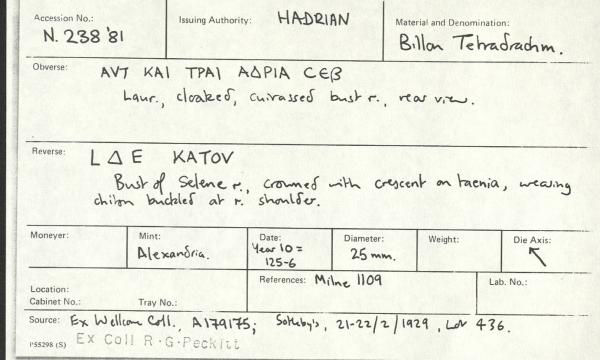 Accession No.: Issuing Authority: HADRIAN Material and Denomination:
N. 238 '81 Billon Tetradrachm.
Obverse: ΑVΤ ΚΑΙ ΤΡΑΙ ΑΔΡΙΑ CЄβ
Laur., cloaked, cuirassed bust r., rear view.
Reverse: L Δ Ε ΚΑΤΟV
Bust of Selene r., crowned with crescent on taenia, wearing
chiton buckled at r. shoulder.
Moneyer: Mint: Date: Diameter: Weight: Die Axis:
Alexandria. Year 10 = 25 mm. ↖
125-6
Location: References: Milne 1109 Lab. No.:
Cabinet No.: Tray No.:
Source: Ex Wellcome Coll., A179175; Sotheby's, 21-22/2/1929, Lot 436.
P55298 (S) Ex Coll R.G. Peckitt